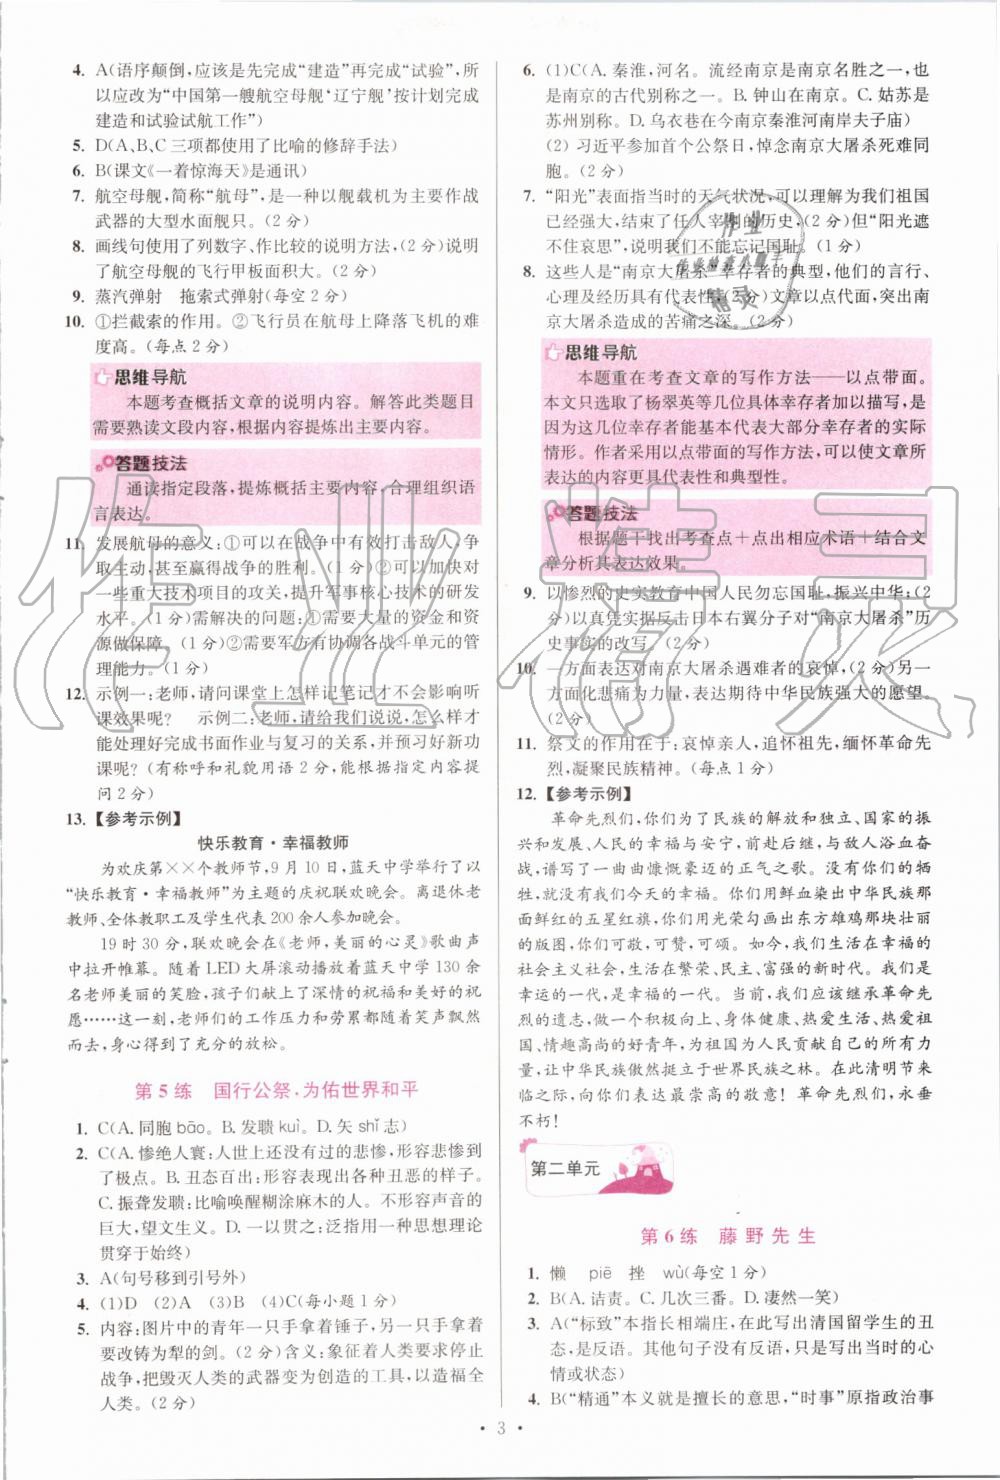 4. A(语序颠倒,应该是先完成“建造”再完成“试验”,所
以应改为“中国第一艘航空母舰‘辽宁舰’按计划完成
建造和试验试航工作”)
5. D(A、B、C三项都使用了比喻的修辞手法)
6. B(课文《一着惊海天》是通讯)
7. 航空母舰,简称“航母”,是一种以舰载机为主要作战
武器的大型水面舰只。(2分)
8. 画线句使用了列数字、作比较的说明方法,(2分)说明
了航空母舰的飞行甲板面积大。(2分)
9. 蒸汽弹射 拖索式弹射(每空2分)
10. ①拦截索的作用。②飞行员在航母上降落飞机的难
度高。(每点2分)
思维导航
本题考查概括文章的说明内容。解答此类题目
需要熟读文段内容,根据内容提炼出主要内容。
答题技法
通读指定段落,提炼概括主要内容,合理组织语
言表达。
11. 发展航母的意义:①可以在战争中有效打击敌人,争
取主动,甚至赢得战争的胜利。(1分)②可以推动对
一些重大技术项目的攻关,提升军事核心技术的研发
水平。(1分)需解决的问题:①需要大量的资金和资
源做保障。(1分)②需要军方有协调各战斗单元的管
理能力。(1分)
12. 示例一:老师,请问课堂上怎样记笔记才不会影响听
课效果呢? 示例二:老师,请给我们说说,怎么样才
能处理好完成书面作业与复习的关系,并预习好新功
课呢?(有称呼和礼貌用语2分,能根据指定内容提
问2分)
13. 【参考示例】
快乐教育·幸福教师
为欢庆第××个教师节,9月10日,蓝天中学举行了以
“快乐教育·幸福教师”为主题的庆祝联欢晚会。离退休老
教师、全体教职工及学生代表200余人参加晚会。
19时30分,联欢晚会在《老师,美丽的心灵》歌曲声
中拉开帷幕。随着LED大屏滚动播放着蓝天中学130余
名老师美丽的笑脸,孩子们献上了深情的祝福和美好的祝
愿……这一刻,老师们的工作压力和劳累都随着笑声飘然
而去,身心得到了充分的放松。
第5练 国行公祭,为佑世界和平
1. C(A.同胞bāo。B.发聩kuì。D.矢shǐ志)
2. C(A.惨绝人寰:人世上还没有过的悲惨,形容悲惨到
了极点。B.丑态百出:形容表现出各种丑恶的样子。
C.振聋发聩:比喻唤醒糊涂麻木的人。不形容声音的
巨大,望文生义。D.一以贯之:泛指用一种思想理论
贯穿于始终)
3. A(句号移到引号外)
4. (1)D (2)A (3)B (4)C(每小题1分)
5. 内容:图片中的青年一只手拿着锤子,另一只手拿着
要改铸为犁的剑。(2分)含义:象征着人类要求终止
战争,把毁灭人类的武器变为创造的工具,以造福全
人类。(2分)
6. (1)C(A.秦淮,河名。流经南京是南京名胜之一,也
是南京的古代别称之一。B.钟山在南京。C.姑苏是
苏州别称。D.乌衣巷在今南京秦淮河南岸夫子庙)
(2)习近平参加首个公祭日,悼念南京大屠杀死难同
胞。(2分)
7. “阳光”表面指当时的天气状况,可以理解为我们祖国
已经强大,结束了任人宰割的历史,(2分)但“阳光遮
不住哀思”,说明我们不能忘记国耻。(1分)
8. 这些人是“南京大屠杀”幸存者的典型,他们的言行、
心理及经历具有代表性。(2分)文章以点代面,突出南
京大屠杀造成的苦痛之深。(2分)
思维导航
本题重在考查文章的写作方法——以点带面。
本文只选取了杨翠英等几位具体幸存者加以描写,是
因为这几位幸存者能基本代表大部分幸存者的实际
情形。作者采用以点带面的写作方法,可以使文章所
表达的内容更具代表性和典型性。
答题技法
根据题干找出考查点+点出相应术语+结合文
章分析其表达效果。
9. 以惨烈的史实教育中国人民勿忘国耻,振兴中华;(2
分)以真凭实据反击日本右翼分子对“南京大屠杀”历
史事实的改写。(2分)
10. 一方面表达对南京大屠杀遇难者的哀悼,(2分)另一
方面化悲痛为力量,表达期待中华民族强大的愿望。
(2分)
11. 祭文的作用在于:哀悼亲人,追怀祖先,缅怀革命先
烈,凝聚民族精神。(每点1分)
12. 【参考示例】
革命先烈们,你们为了民族的解放和独立、国家的振
兴和发展、人民的幸福与安康,前赴后继,与敌人浴血奋
战,谱写了一曲曲慷慨豪迈的正气之歌。没有你们的牺
牲,就没有我们今天的幸福。你们用鲜血染出中华民族那
面鲜红的五星红旗,你们用光荣勾画出东方雄鸡那块壮丽
的版图,你们可敬,可赞,可颂。如今,我们生活在幸福的
社会主义社会,生活在繁荣、民主、富强的新时代。我们是
幸运的一代,是幸福的一代。当前,我们应该继承革命先烈
的遗志,做一个积极向上、身体健康、热爱生活、热爱祖
国、情趣高尚的好青年,为祖国为人民贡献出自己的所有力
量,让中华民族傲然挺立于世界民族之林。在此清明节来
临之际,向你们致以最崇高的敬意!革命先烈们,永垂
不朽!
第二单元
第6练 藤野先生
1. 懒 piē 挫 wù(每空1分)
2. B(A.诘责。C.几次三番。D.凄然一笑)
3. A(“标致”本指长相端庄,在此写出清国留学生的丑
态,是反语。其他句子没有反语,只是写出当时的心
情或状态)
4. B(“精通”本义就是擅长的意思,“时事”原指政治事
·3·